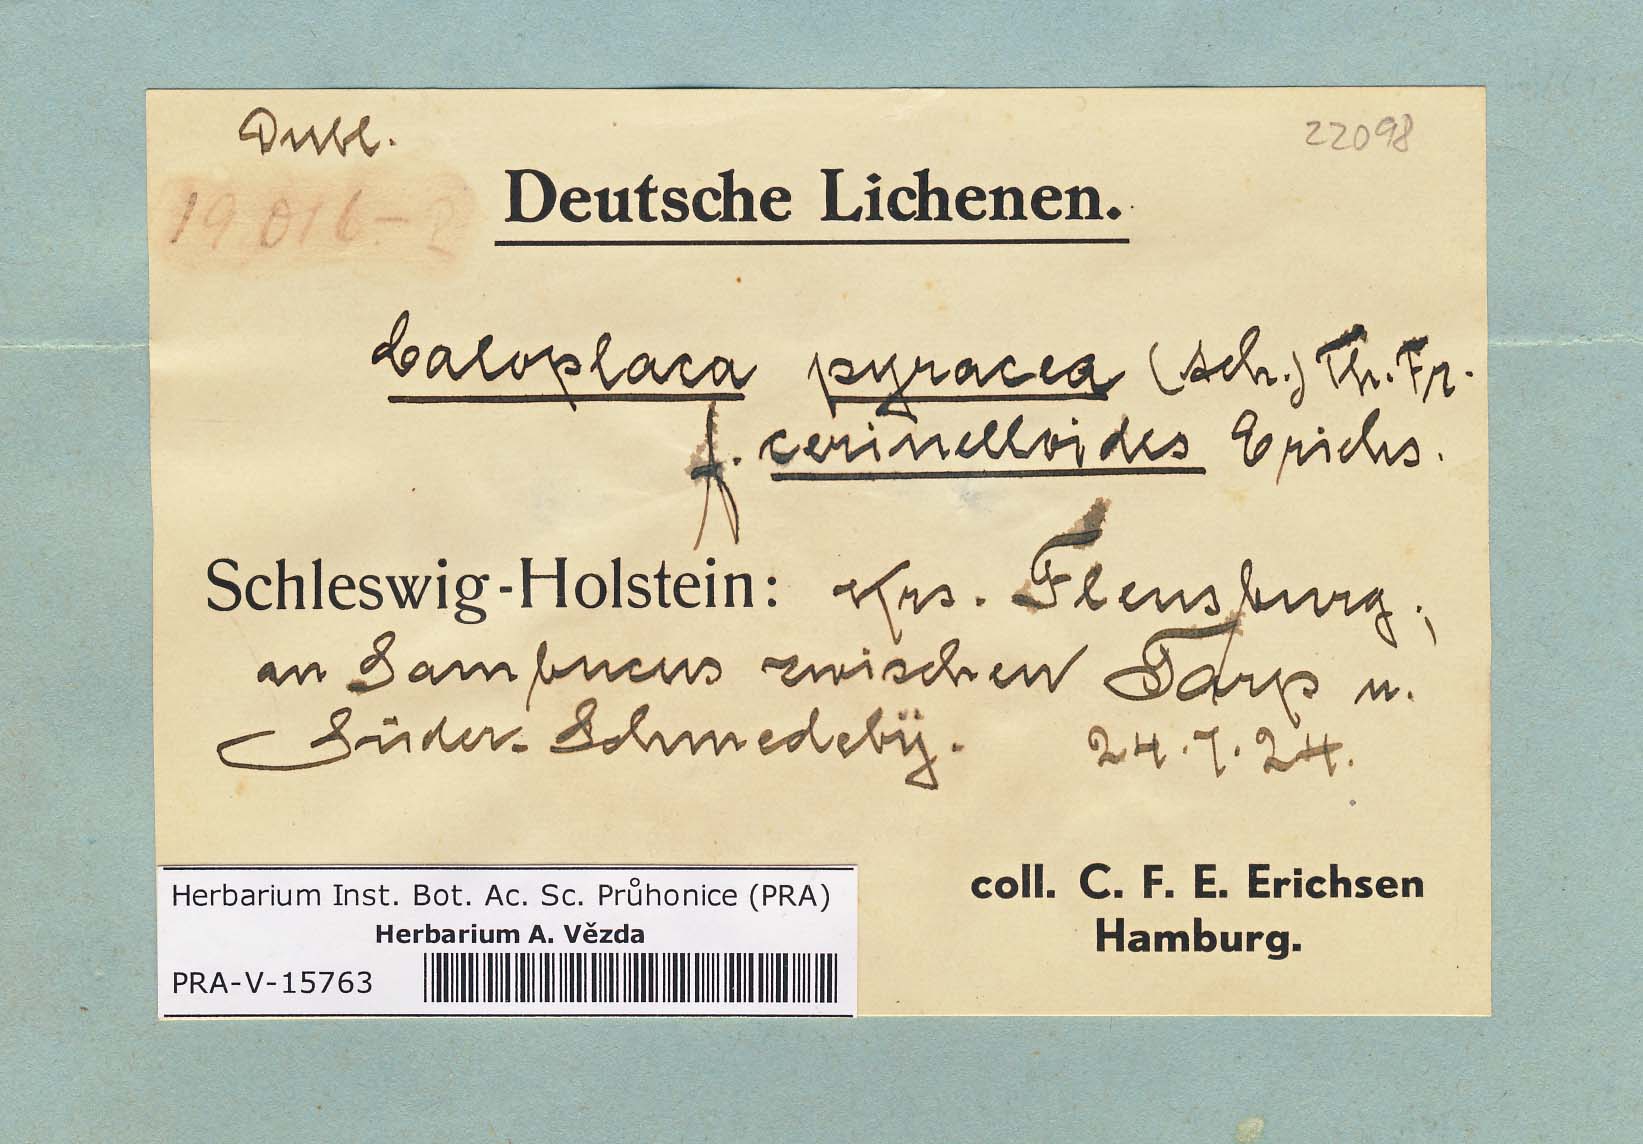 Dubl.
22098
19016-2
Deutsche Lichenen.
Caloplaca pyracea (Ach.) Th. Fr.
f. cerinelloides Erichs.
Schleswig-Holstein: Krs. Flensburg;
an Sambucus zwischen Tarp u.
Süder-Schmedebÿ. 24.7.24.
coll. C. F. E. Erichsen
Hamburg.
Herbarium Inst. Bot. Ac. Sc. Průhonice (PRA)
Herbarium A. Vězda
PRA-V-15763